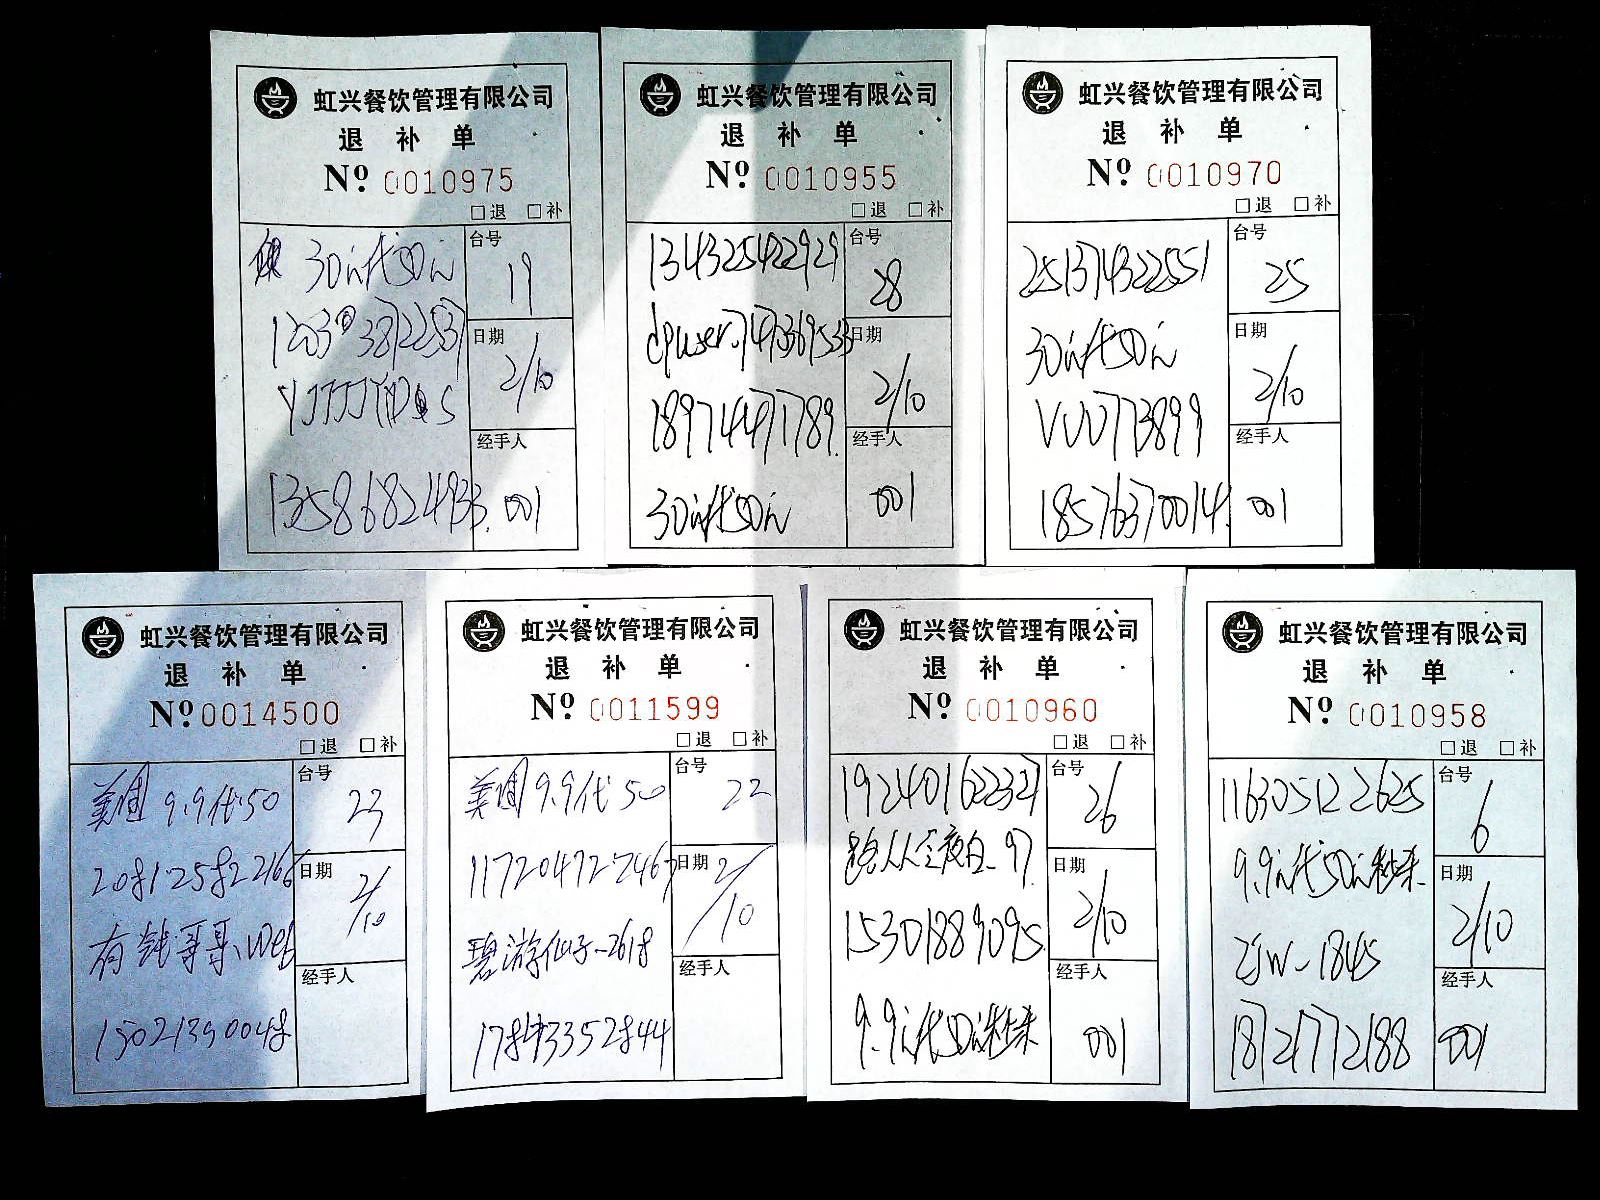 虹兴餐饮管理有限公司
退 补 单
Nº 0010975
□退 □补
30元代50元
13586824933
台号
19
日期
2/10
经手人
001
虹兴餐饮管理有限公司
退 补 单
Nº 0010955
□退 □补
134325422929
dpuser.7473695333
18974471789
30元代50元
台号
28
日期
2/10
经手人
001
虹兴餐饮管理有限公司
退 补 单
Nº 0010970
□退 □补
251374322551
30元代50元
VUU773899
18576370014
台号
25
日期
2/10
经手人
001
虹兴餐饮管理有限公司
退 补 单
Nº 0014500
□退 □补
美团 9.9代50
208125822166
有钱哥哥、web
15021390048
台号
23
日期
2/10
经手人
虹兴餐饮管理有限公司
退 补 单
Nº 0011599
□退 □补
美团 9.9代50
117204727467
碧游仙子-2618
台号
22
日期
2/10
经手人
虹兴餐饮管理有限公司
退 补 单
Nº 0010960
□退 □补
192401622327
今夜白-97
15301889095
9.9元代50元秒杀
台号
26
日期
2/10
经手人
001
虹兴餐饮管理有限公司
退 补 单
Nº 0010958
□退 □补
116305122625
9.9元代50元秒杀
ZJW-1845
18721772188
台号
6
日期
2/10
经手人
001